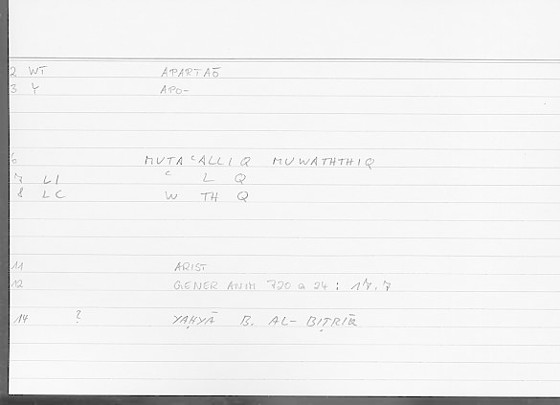 2 WT APARTAŌ
3 Y APO-
6 MUTAʿALLIQ MUWATHTHIQ
7 LI ʿ L Q
8 LC W TH Q
11 ARIST
12 GENER ANIM 720 a 24 : 17.7
14 ? YAḤYĀ B. AL-BIṬRĪQ